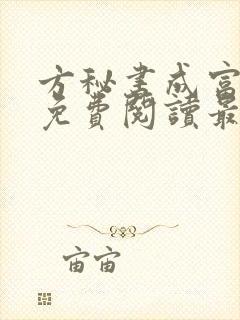 方秘書成富
免費閱讀最
宙宙